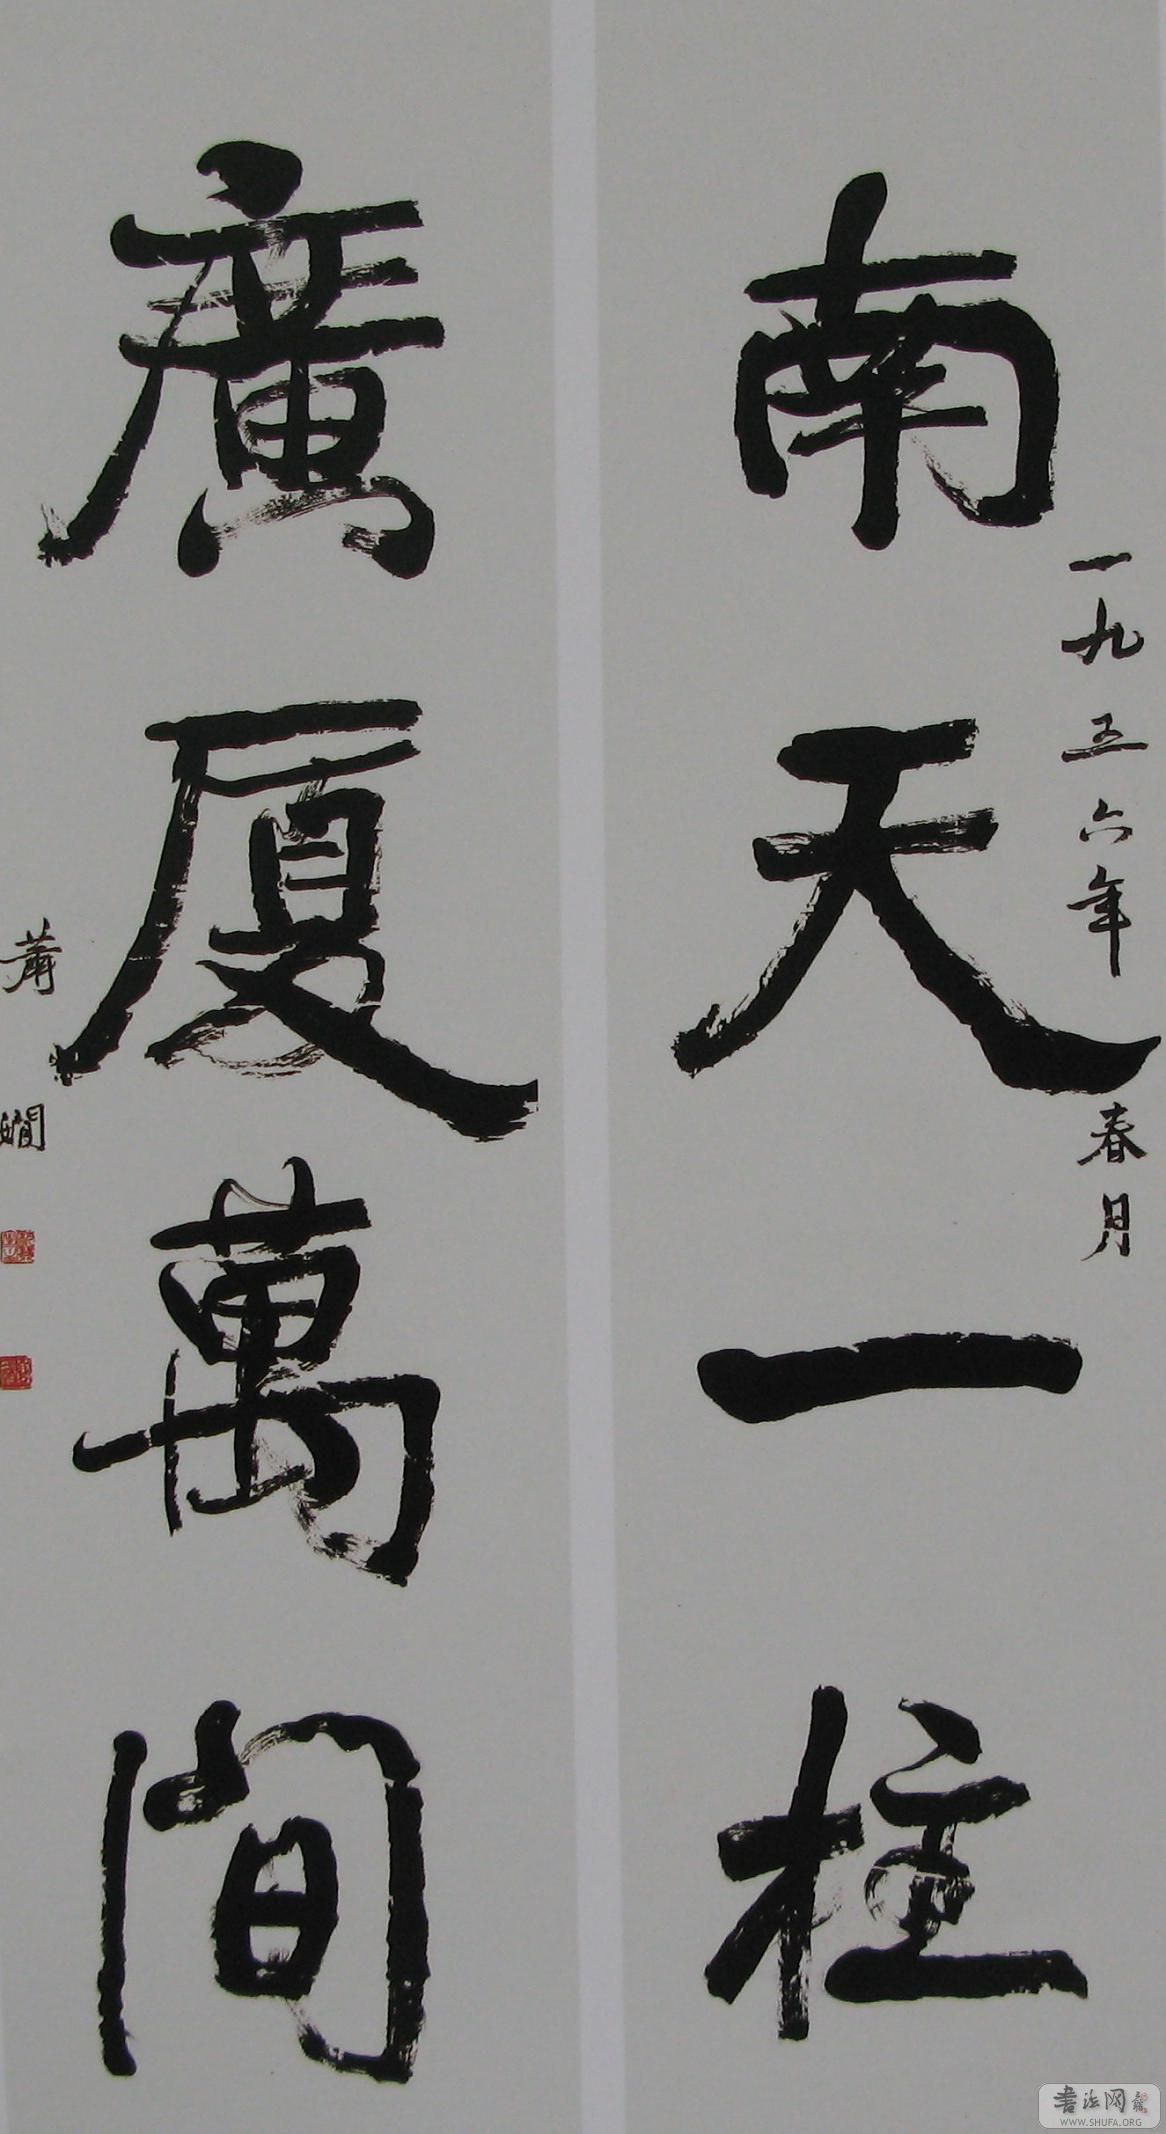 南天一柱
一九五六年春月
廣厦萬間
蕭嫺
書法网
WWW.SHUFA.ORG